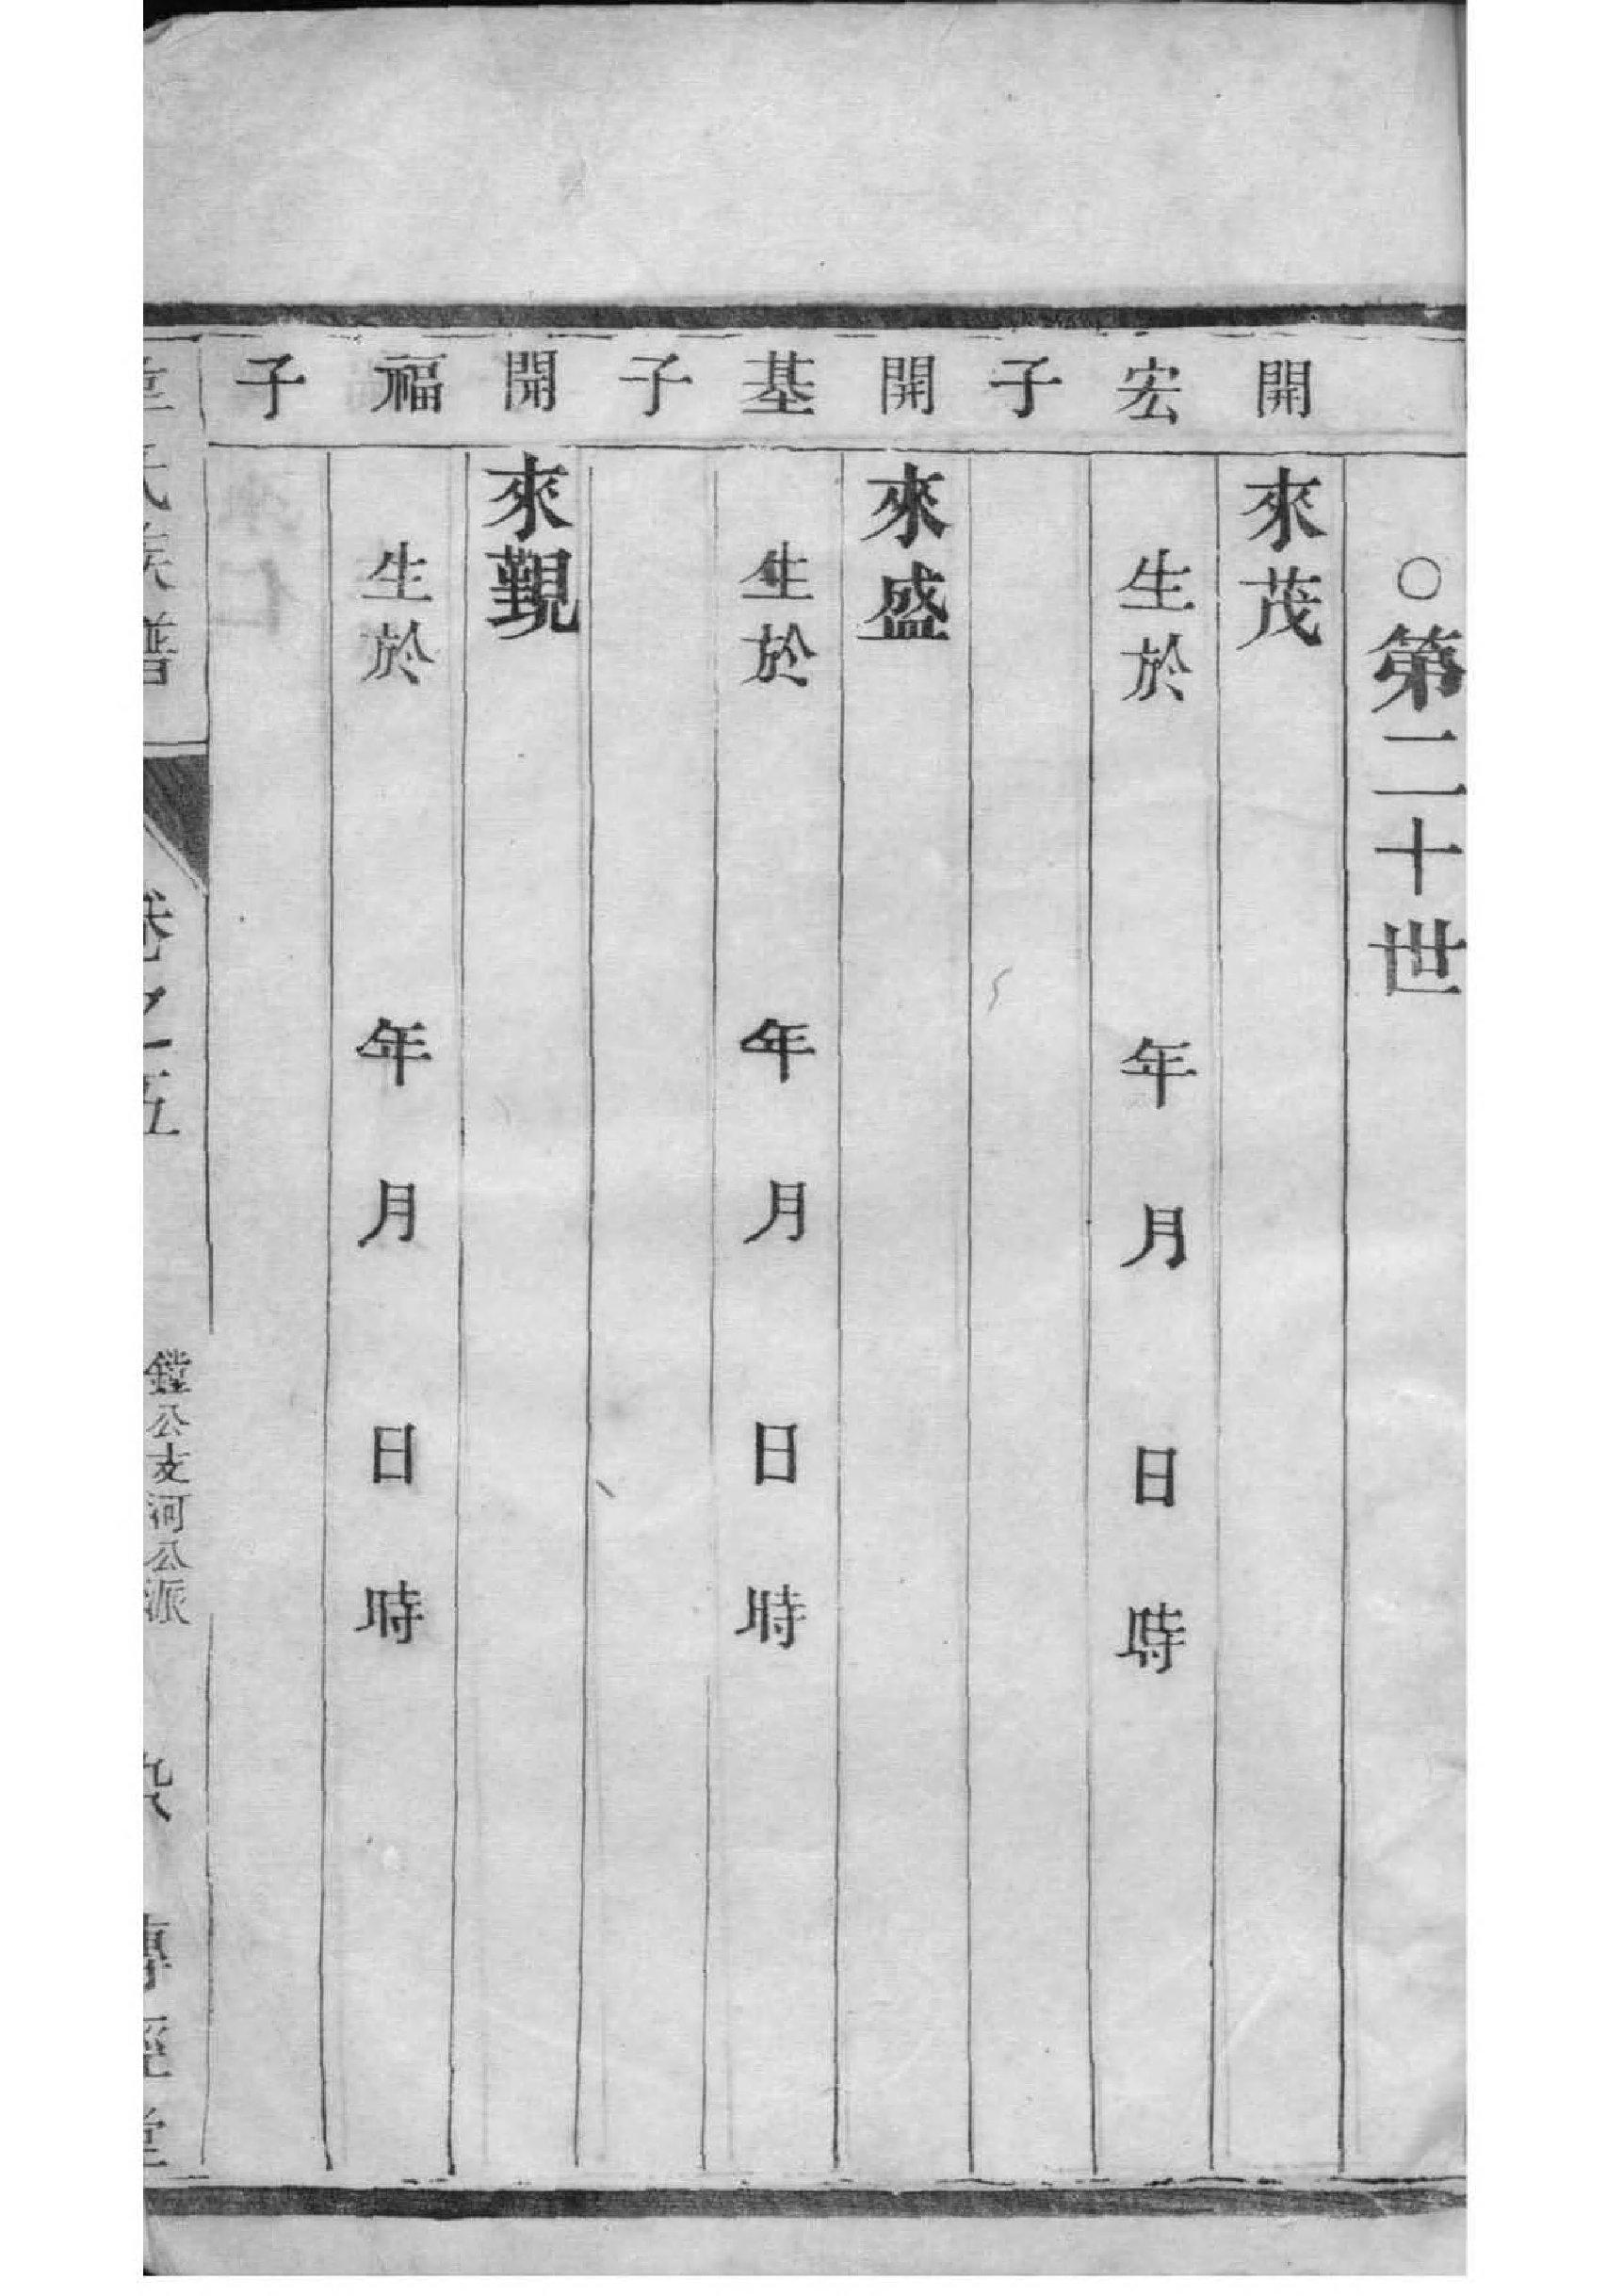 ○第二十世
開宏子
來茂
生於 年 月 日 時
開基子
來盛
生於 年 月 日 時
開福子
來覲
生於 年 月 日 時
氏族譜
卷之五
鏜公支河公派
經堂